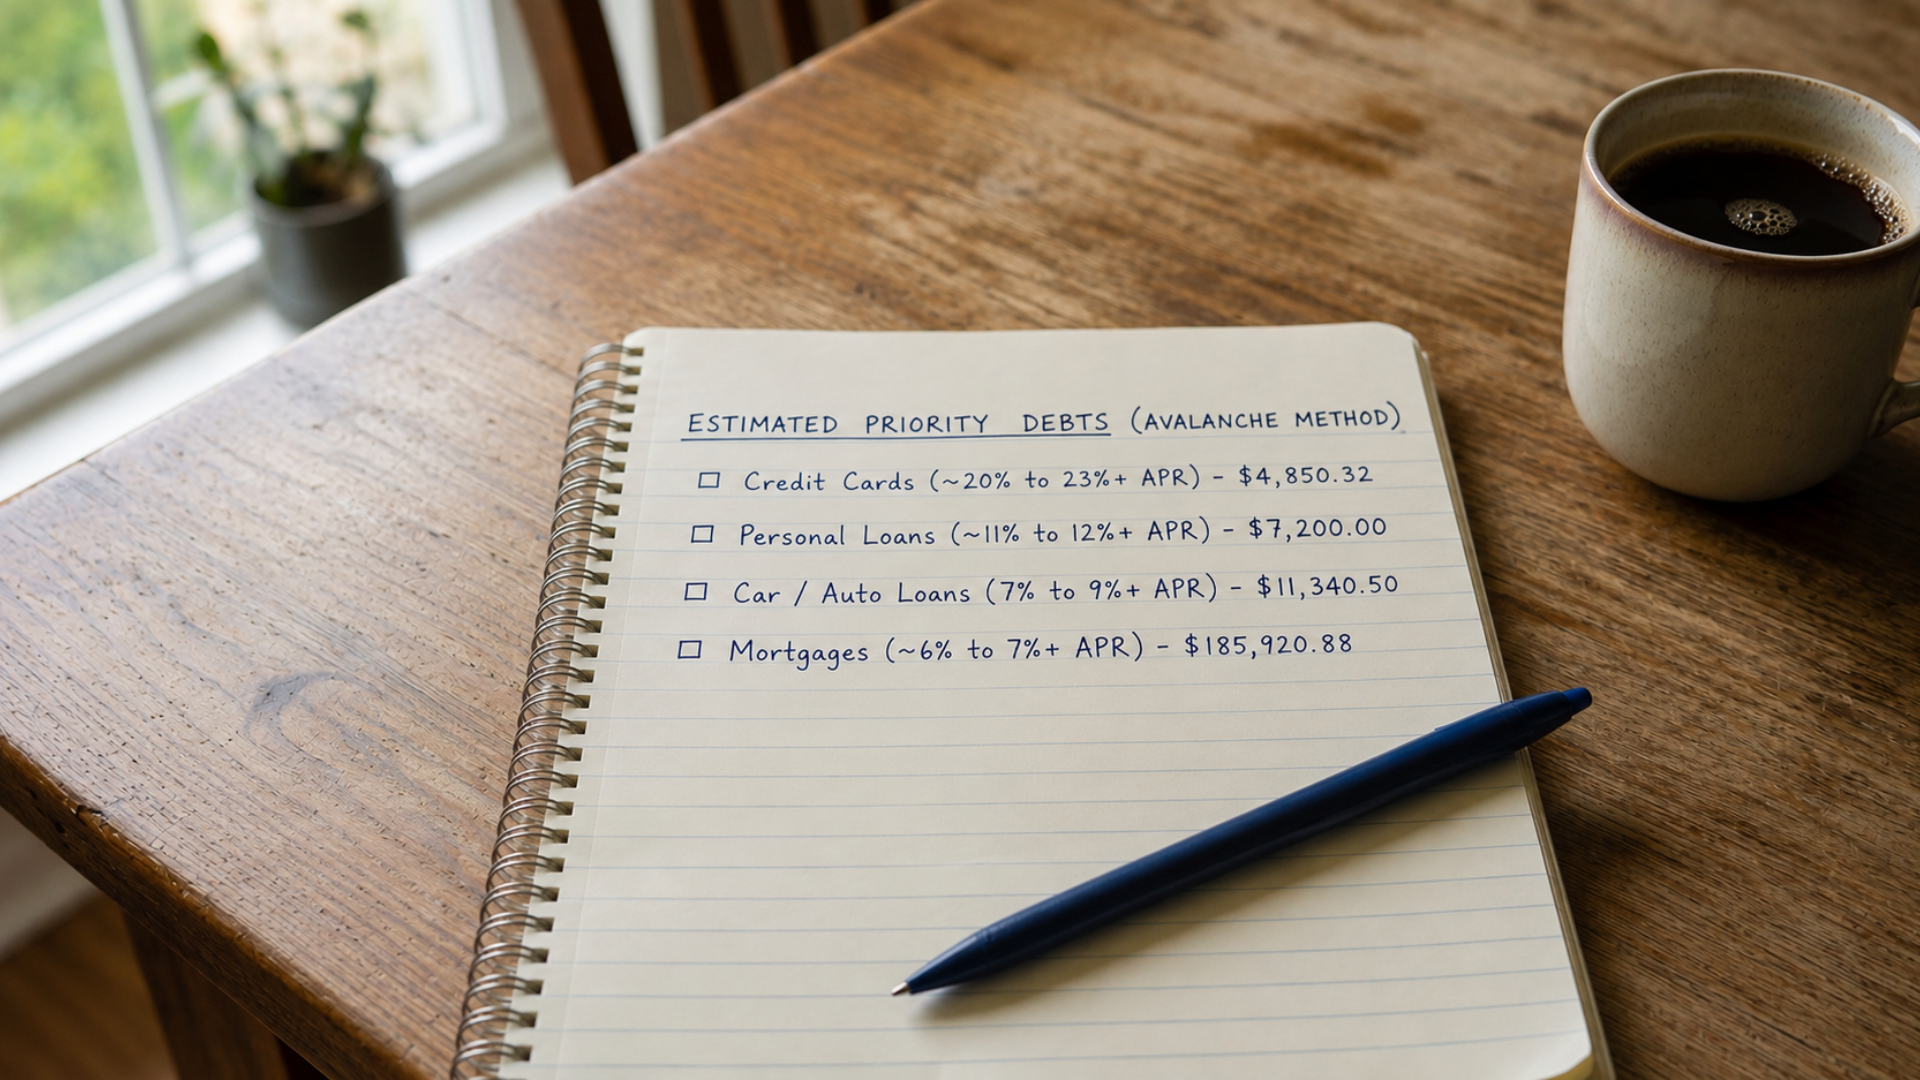 ESTIMATED PRIORITY DEBTS (AVALANCHE METHOD)
☐ Credit Cards (~20% to 23%+ APR) - $4,850.32
☐ Personal Loans (~11% to 12%+ APR) - $7,200.00
☐ Car / Auto Loans (7% to 9%+ APR) - $11,340.50
☐ Mortgages (~6% to 7%+ APR) - $185,920.88